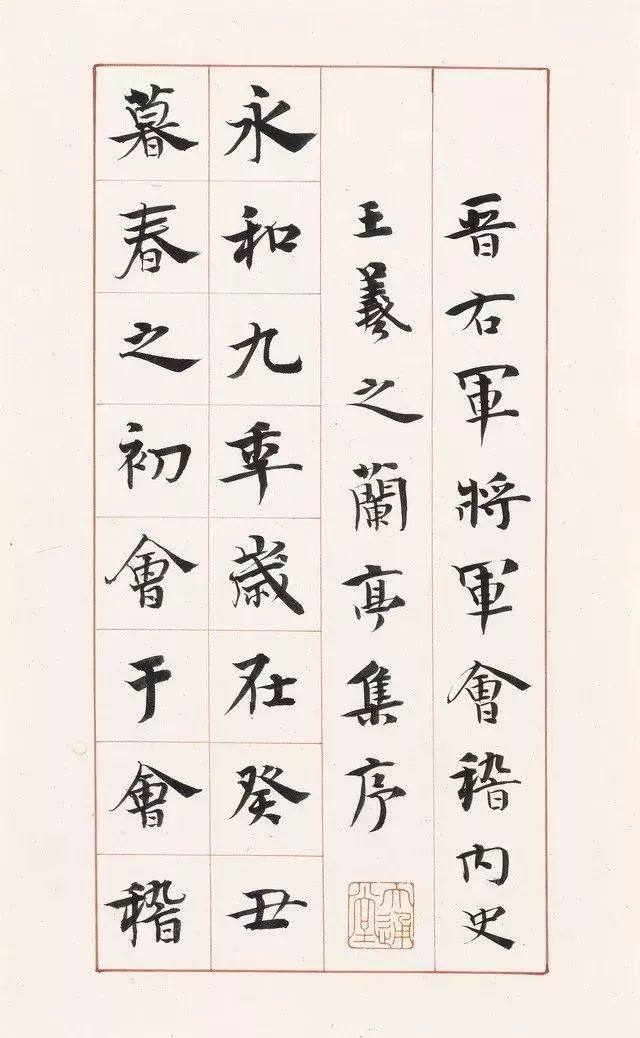 晉右軍將軍會稽内史
王羲之蘭亭集序
永和九年歲在癸丑
暮春之初會于會稽